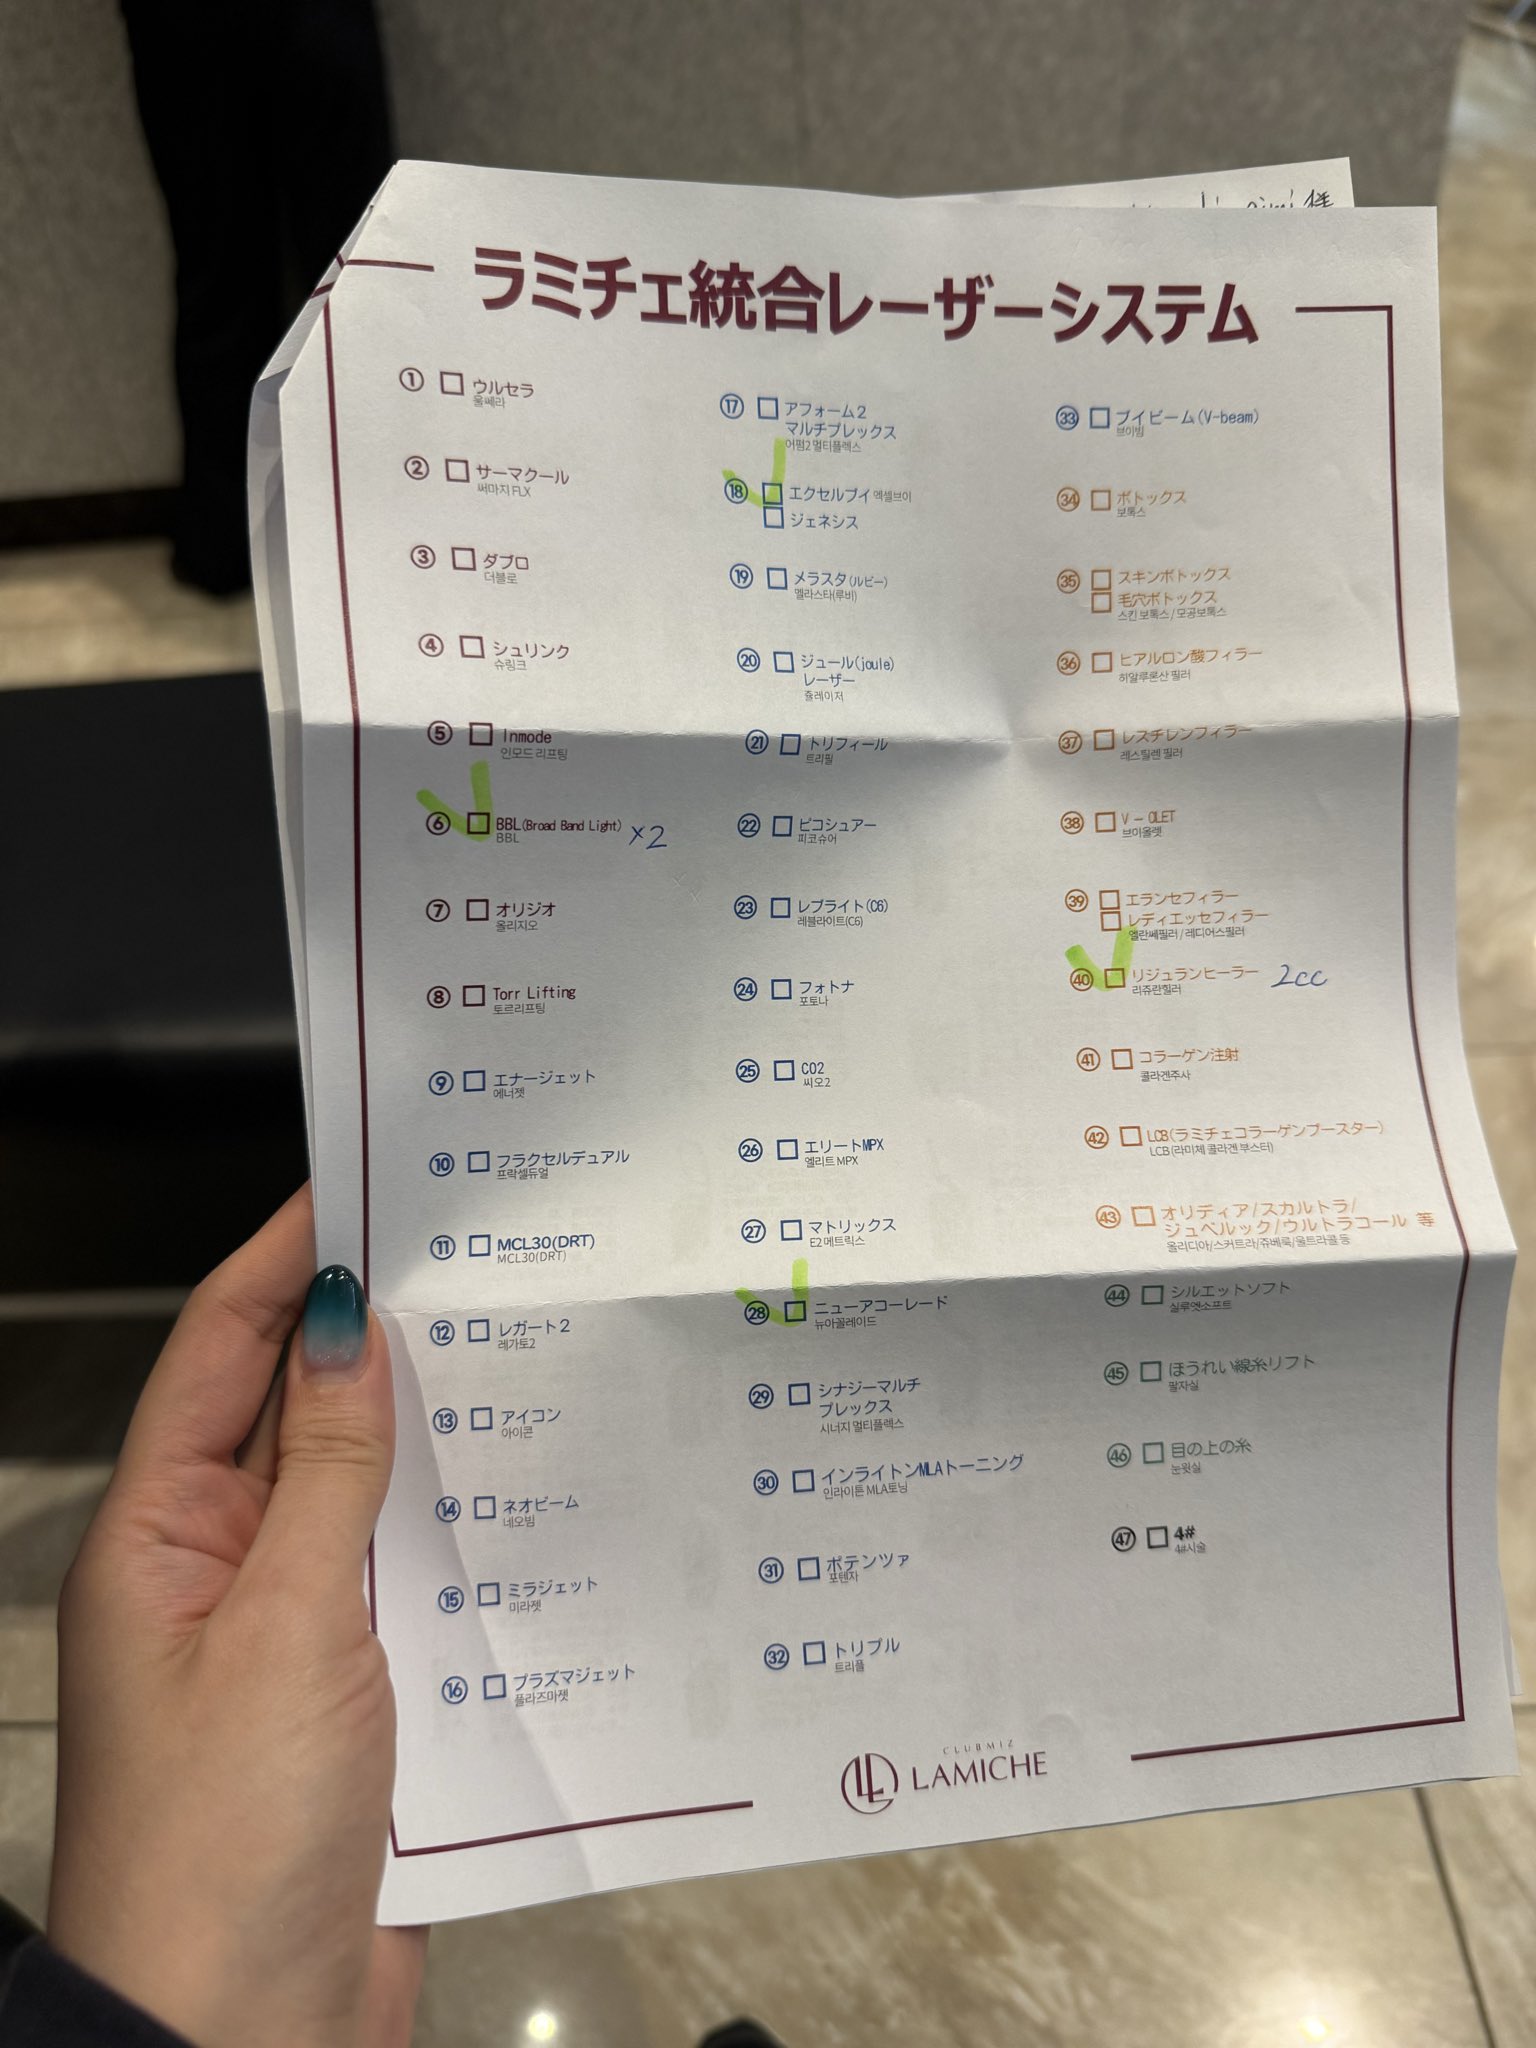 様
ラミチェ統合レーザーシステム
① ウルセラ
울쎄라
② サーマクール
써마지 FLX
③ ダブロ
더블로
④ シュリンク
슈링크
⑤ Inmode
인모드 리프팅
⑥ BBL(Broad Band Light) ×2
BBL
⑦ オリジオ
올리지오
⑧ Torr Lifting
토르리프팅
⑨ エナージェット
에너젯
⑩ フラクセルデュアル
프락셀듀얼
⑪ MCL30(DRT)
MCL30(DRT)
⑫ レガート2
레가토2
⑬ アイコン
아이콘
⑭ ネオビーム
네오빔
⑮ ミラジェット
미라젯
⑯ プラズマジェット
플라즈마젯
⑰ アフォーム2
マルチプレックス
어펌2 멀티플렉스
⑱ エクセルブイ 엑셀브이
ジェネシス
⑲ メラスタ(ルビー)
멜라스타(루비)
⑳ ジュール(joule)
レーザー
쥴레이저
㉑ トリフィール
트리필
㉒ ピコシュアー
피코슈어
㉓ レブライト(C6)
레블라이트(C6)
㉔ フォトナ
포토나
㉕ CO2
씨오2
㉖ エリートMPX
엘리트 MPX
㉗ マトリックス
E2 메트릭스
㉘ ニューアコーレード
뉴아꼴레이드
㉙ シナジーマルチ
プレックス
시너지 멀티플렉스
㉚ インライトンMLAトーニング
인라이튼 MLA토닝
㉛ ポテンツァ
포텐자
㉜ トリプル
트리플
㉝ ブイビーム(V-beam)
브이빔
㉞ ボトックス
보톡스
㉟ スキンボトックス
毛穴ボトックス
스킨 보톡스 / 모공보톡스
㊱ ヒアルロン酸フィラー
히알루론산 필러
㊲ レスチレンフィラー
레스틸렌 필러
㊳ V-OLET
브이올렛
㊴ エランセフィラー
レディエッセフィラー
엘란쎄필러 / 레디어스필러
㊵ リジュランヒーラー 2cc
리쥬란힐러
㊶ コラーゲン注射
콜라겐주사
㊷ LCB(ラミチェコラーゲンブースター)
LCB (라미체 콜라겐 부스터)
㊸ オリディア/スカルトラ/
ジュベルック/ウルトラコール 等
올리디아/스커트라/쥬베룩/울트라콜 등
㊹ シルエットソフト
실루엣소프트
㊺ ほうれい線糸リフト
팔자실
㊻ 目の上の糸
눈윗실
㊼ 4#
4#시술
CLUBMIZ
LAMICHE